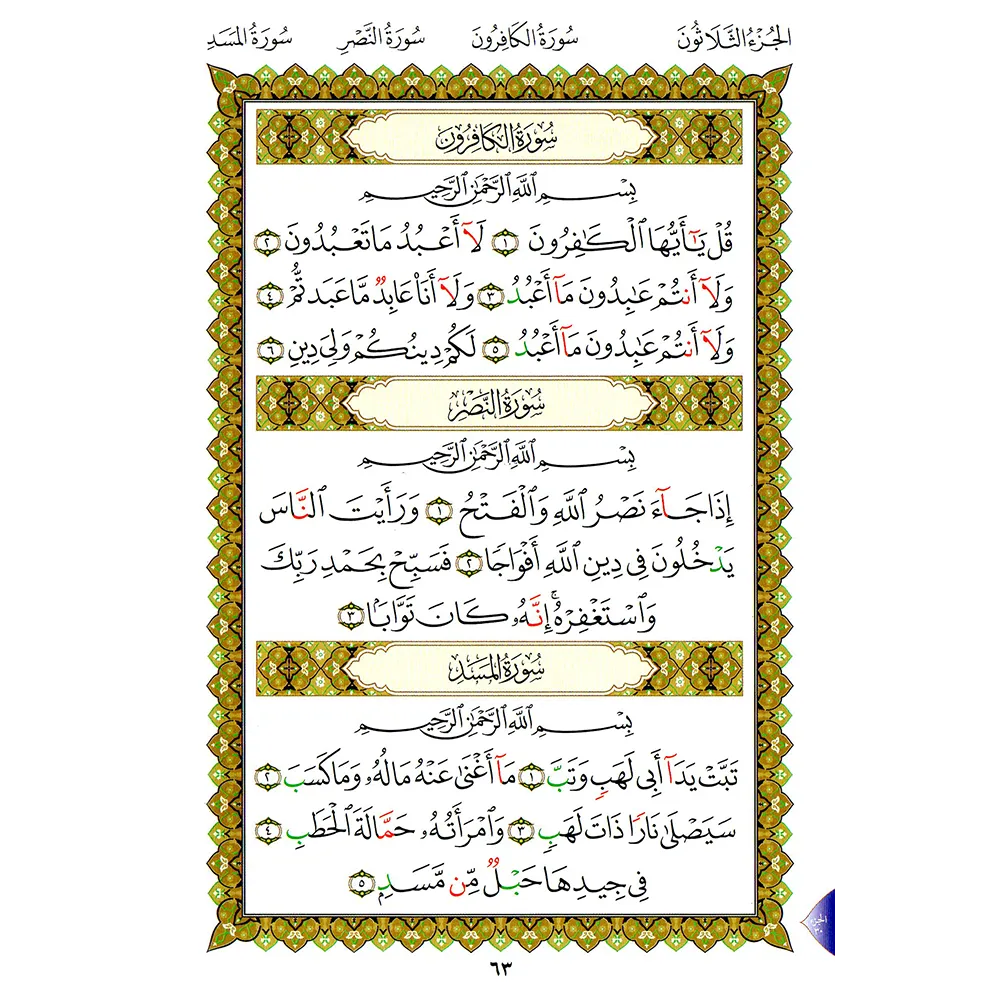 الجُزْءُ الثَّلَاثُونَ سُورَةُ الكَافِرُونَ سُورَةُ النَّصْرِ سُورَةُ المَسَدِ
سُورَةُ الكَافِرُونَ
بِسْمِ ٱللَّهِ ٱلرَّحْمَٰنِ ٱلرَّحِيمِ
قُلْ يَٰٓأَيُّهَا ٱلْكَٰفِرُونَ ١ لَآ أَعْبُدُ مَا تَعْبُدُونَ ٢
وَلَآ أَنتُمْ عَٰبِدُونَ مَآ أَعْبُدُ ٣ وَلَآ أَنَا۠ عَابِدٌ مَّا عَبَدتُّمْ ٤
وَلَآ أَنتُمْ عَٰبِدُونَ مَآ أَعْبُدُ ٥ لَكُمْ دِينُكُمْ وَلِيَ دِينِ ٦
سُورَةُ النَّصْرِ
بِسْمِ ٱللَّهِ ٱلرَّحْمَٰنِ ٱلرَّحِيمِ
إِذَا جَآءَ نَصْرُ ٱللَّهِ وَٱلْفَتْحُ ١ وَرَأَيْتَ ٱلنَّاسَ
يَدْخُلُونَ فِي دِينِ ٱللَّهِ أَفْوَاجًا ٢ فَسَبِّحْ بِحَمْدِ رَبِّكَ
وَٱسْتَغْفِرْهُ ۚ إِنَّهُۥ كَانَ تَوَّابًۢا ٣
سُورَةُ المَسَدِ
بِسْمِ ٱللَّهِ ٱلرَّحْمَٰنِ ٱلرَّحِيمِ
تَبَّتْ يَدَآ أَبِي لَهَبٍ وَتَبَّ ١ مَآ أَغْنَىٰ عَنْهُ مَالُهُۥ وَمَا كَسَبَ ٢
سَيَصْلَىٰ نَارًا ذَاتَ لَهَبٍ ٣ وَٱمْرَأَتُهُۥ حَمَّالَةَ ٱلْحَطَبِ ٤
فِي جِيدِهَا حَبْلٌ مِّن مَّسَدٍۭ ٥
الجزء
٣٠
٦٣